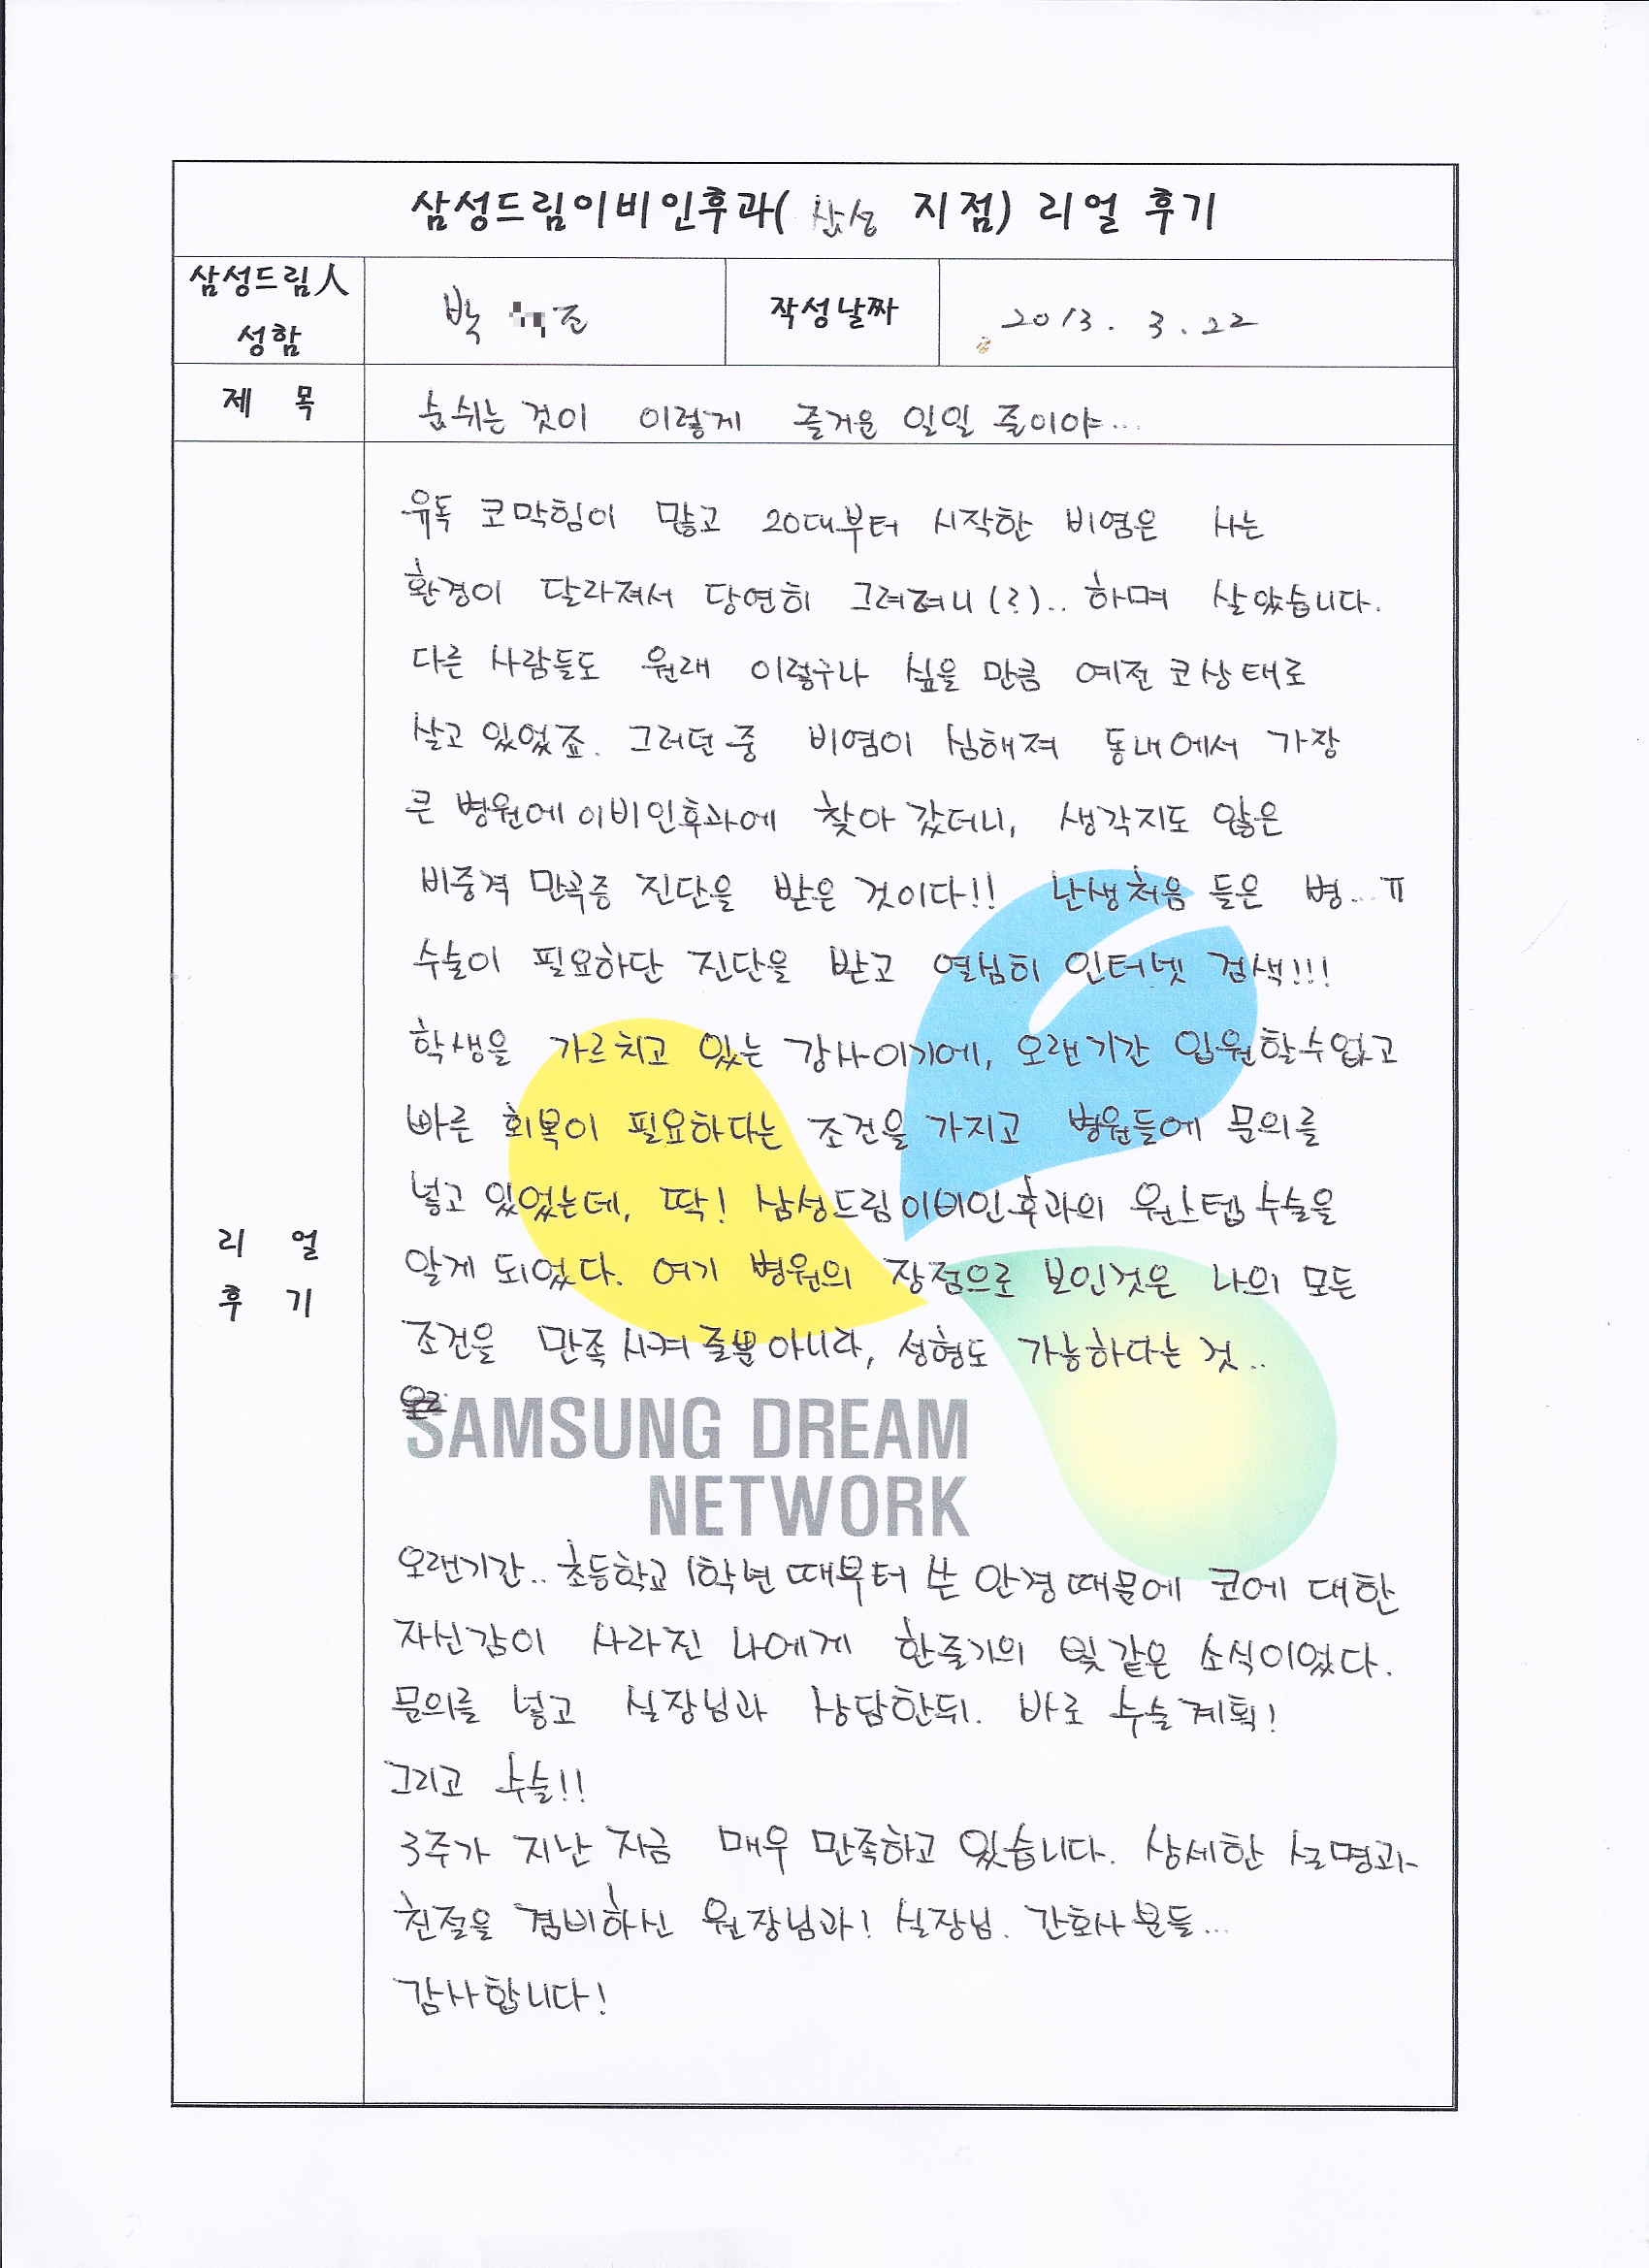 삼성드림이비인후과( 삼성 지점) 리얼 후기
삼성드림人 성함
박 준
작성날짜
2013. 3. 22
제 목
숨쉬는 것이 이렇게 즐거운 일일 줄이야...
리 얼
후 기
유독 코막힘이 많고 20대부터 시작한 비염은 사는
환경이 달라져서 당연히 그려려니(?).. 하며 살았습니다.
다른 사람들도 원래 이렇구나 싶을 만큼 예전 코상태로
살고 있었죠. 그러던 중 비염이 심해져 동내에서 가장
큰 병원에 이비인후과에 찾아 갔더니, 생각지도 않은
비중격 만곡증 진단을 받은 것이다!! 난생처음 들은 병...ㅠ
수술이 필요하단 진단을 받고 열심히 인터넷 검색!!!
학생을 가르치고 있는 강사이기에, 오랜기간 입원할수없고
빠른 회복이 필요하다는 조건을 가지고 병원들에 문의를
넣고 있었는데, 딱! 삼성드림이비인후과의 원스텝 수술을
알게 되었다. 여기 병원의 장점으로 보인것은 나의 모든
조건을 만족시켜 줄뿐 아니라, 성형도 가능하다는 것..
SAMSUNG DREAM
NETWORK
오랜기간.. 초등학교 1학년 때부터 쓴 안경때문에 코에 대한
자신감이 사라진 나에게 한줄기의 빛같은 소식이었다.
문의를 넣고 실장님과 상담한뒤. 바로 수술계획!
그리고 수술!!
3주가 지난 지금 매우 만족하고 있습니다. 상세한 설명과
친절을 겸비하신 원장님과! 실장님. 간호사분들...
감사합니다!